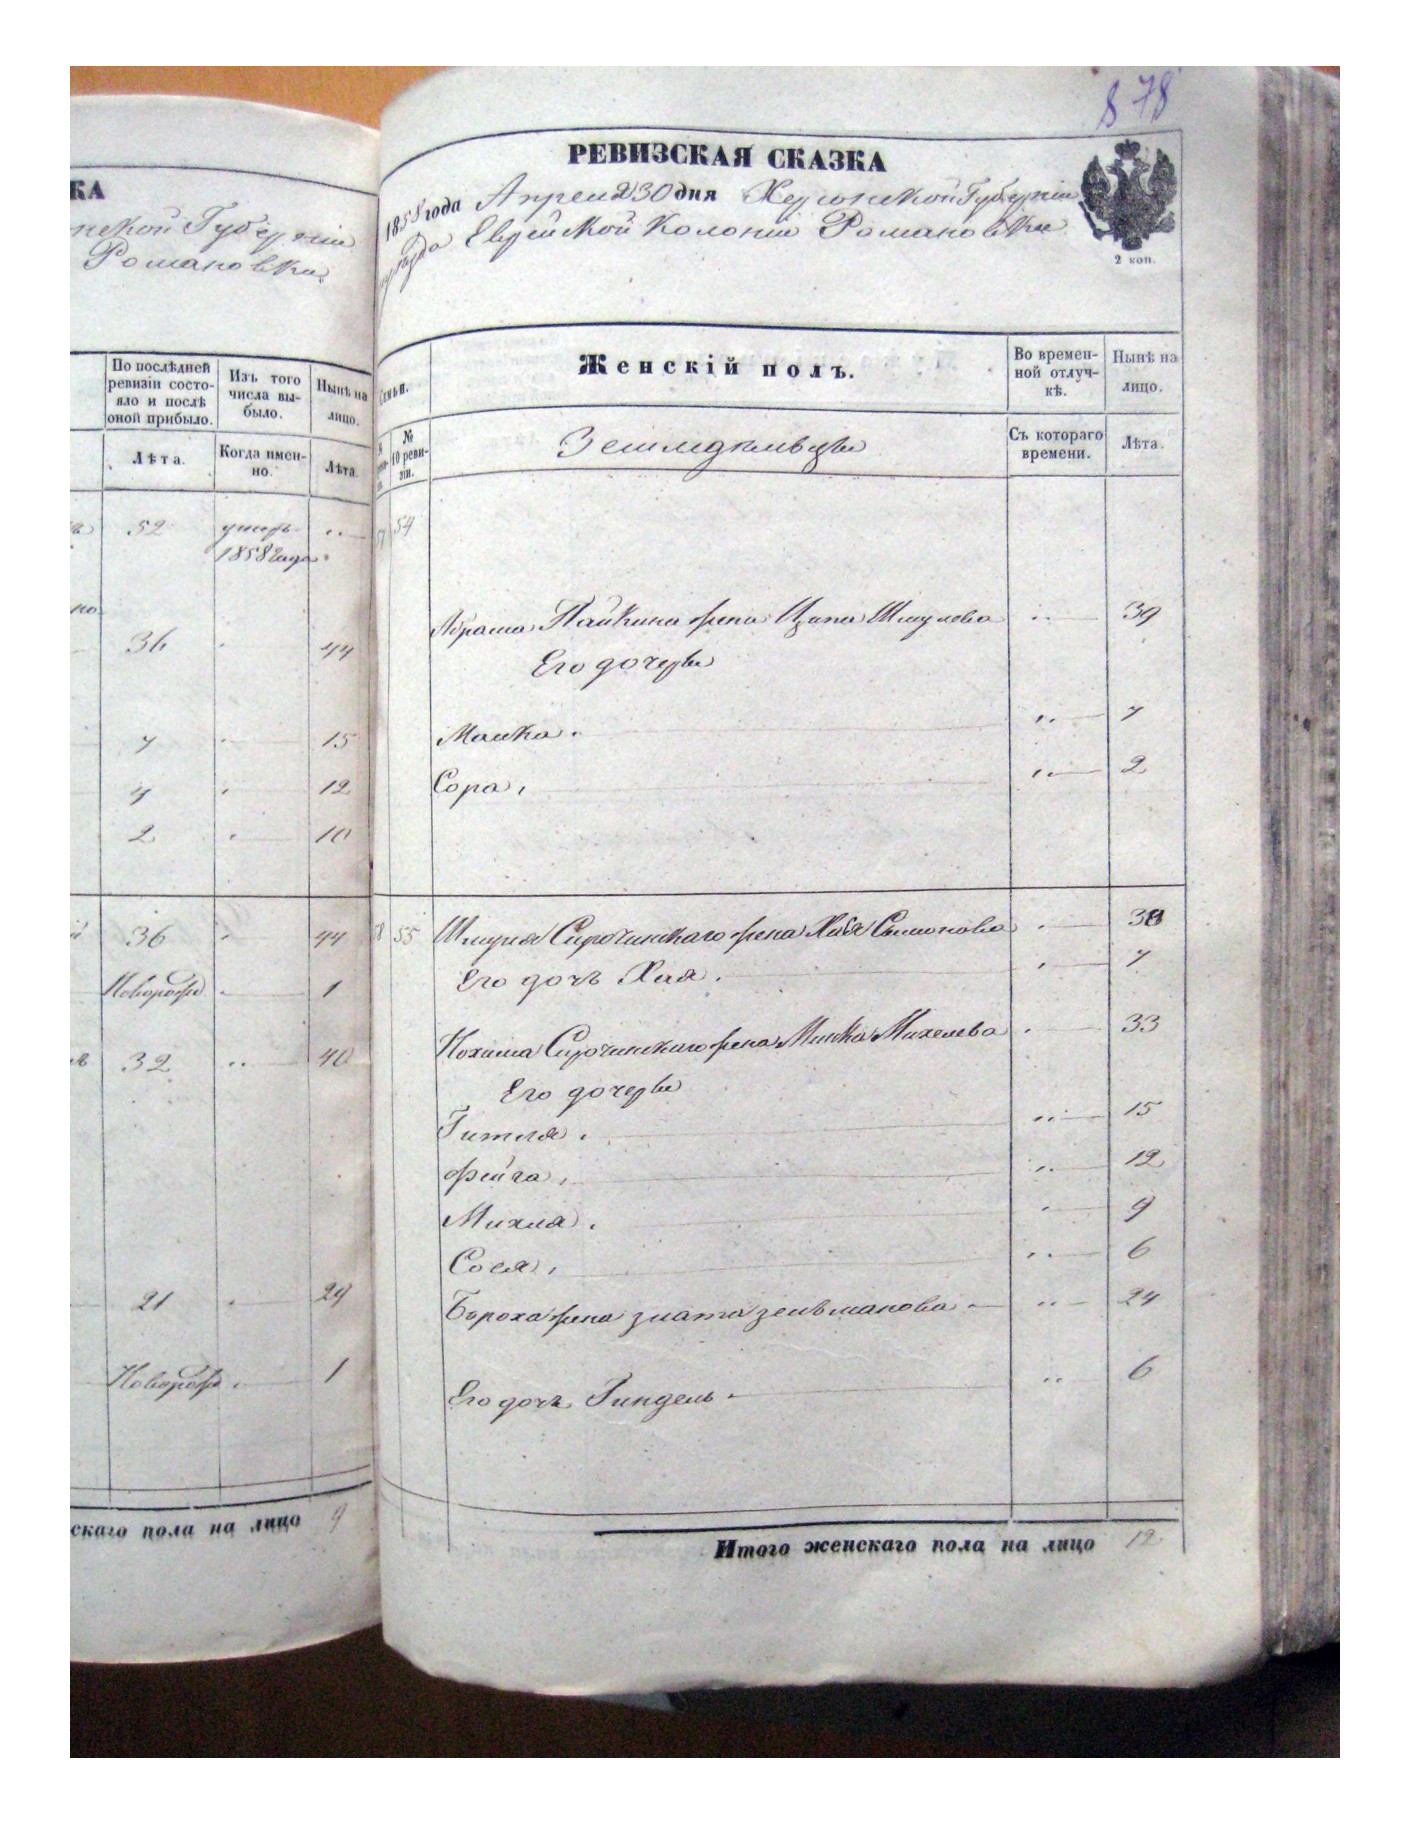 КА
нской Губерніи
Романовки
По послѣдней ревизіи состо-
яло и послѣ
оной прибыло.
Изъ того
числа вы-
было.
Ныне на
лицо.
Лѣта.
Когда имен-
но.
Лѣта.
52 умеръ
1858 года
36 44
7 15
4 12
2 10
36 44
Новорожд 1
32 40
21 29
Новорожд 1
скаго пола на лицо 9
878
РЕВИЗСКАЯ СКАЗКА
1858 года Апреля 30 дня Херсонской Губерніи
уѣзда Еврейской Колоніи Романовки
2 коп.
Семьи.
Женскій полъ.
Во времен-
ной отлуч-
кѣ.
Нынѣ на
лицо.
№
10 реви-
зіи.
Земледѣльцы
Съ котораго
времени.
Лѣта.
57 54
Абрама Пайкина жена Ципа Шмулева 39
Его дочери
Малка 7
Сора 2
58 55 Шмуля Сирочинскаго жена Хая Симонова
Его дочь Хая 7
Нохима Сирочинскаго жена Минка Михелева 33
Его дочери
Гитля 15
Фейга 12
Михля 9
Сося 6
Бороха жена Злата Зельманова 24
Его дочь Гиндель 6
Итого женскаго пола на лицо 12